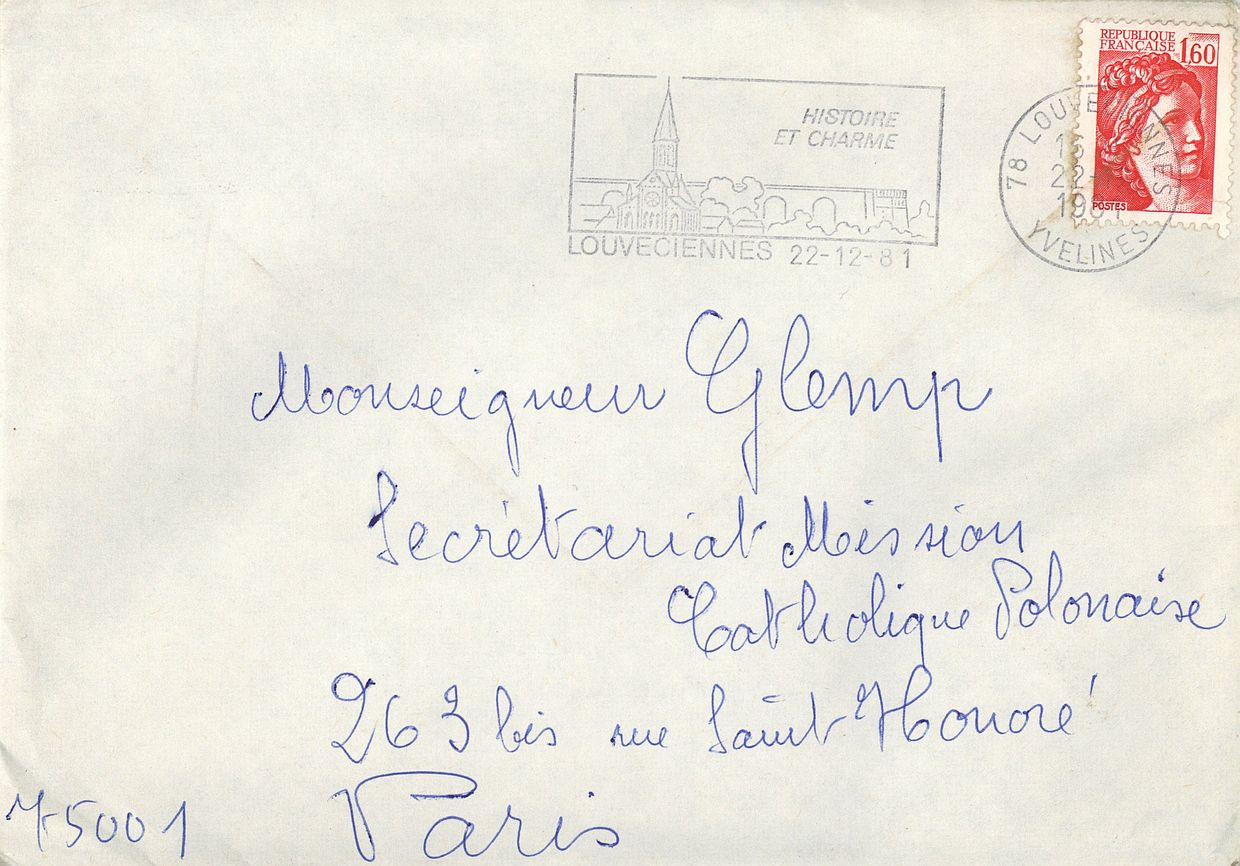 REPUBLIQUE
FRANÇAISE 1,60
POSTES
HISTOIRE
ET CHARME
LOUVECIENNES 22-12-81
78 LOUVECIENNES
22-
1981
YVELINES
Monseigneur Glemp
Secrétariat Mission
Catholique Polonaise
263 bis rue Saint Honoré
75001 Paris